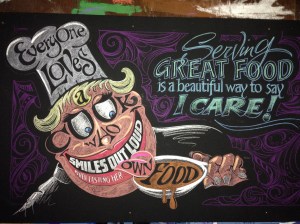 EveryOne
Loves
a
COOK
WHO
SMILES OUT LOUD
WHEN TASTING HER
OWN
FOOD
Serving
GREAT FOOD
is a beautiful way to say
I CARE!